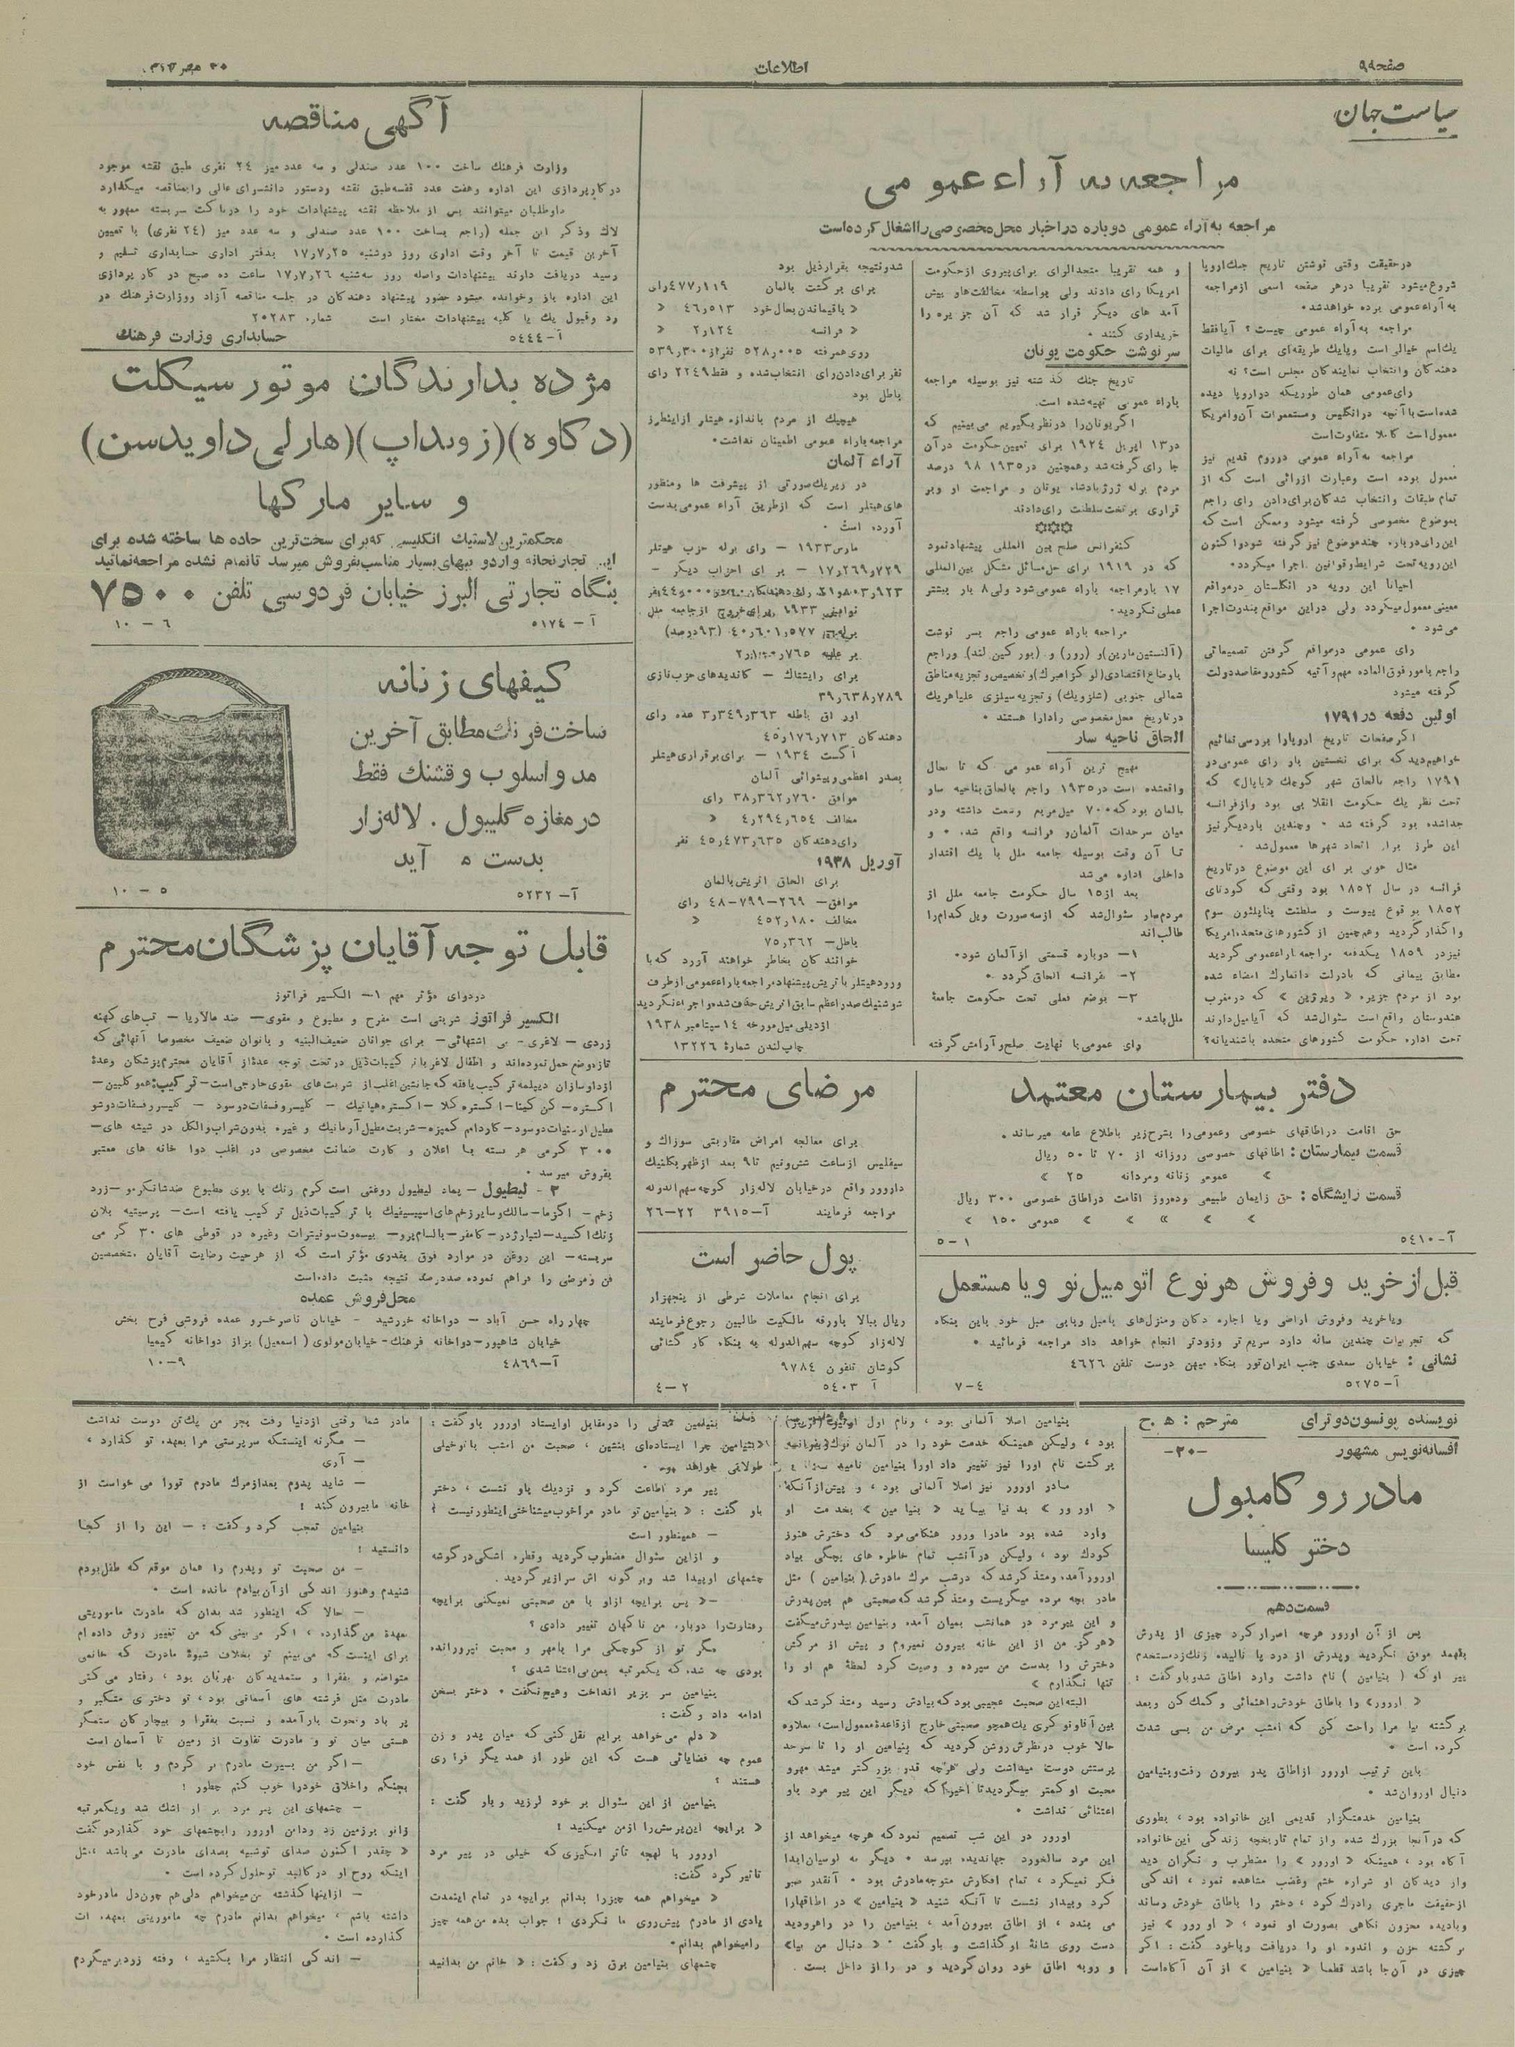 صفحه ۹۹
اطلاعات
سیاست جهان
مراجعه به آراء عمومی
مراجعه به آراء عمومی دوباره در اخبار محل مخصوصی را اشغال کرده است
در حقیقت وقتی نوشتن تاریخ جنك اروپا
شروع میشود تقریبا در هر صفحه اسمی از مراجعه
به آراء عمومی برده خواهد شد
مراجعه به آراء عمومی چیست؟ آیا فقط
یك اسم خیالی است ویا یك طریقه‌ای برای مالیات
دهندگان وانتخاب نمایندگان مجلس است؟ نه
رای عمومی همان طوریکه در اروپا دیده
شده است با آنچه در انگلیس ومستعمرات آن وامریکا
معمول است کاملا متفاوت است
مراجعه به آراء عمومی در روم قدیم نیز
معمول بوده است وعبارت از رائی است که از
تمام طبقات وانتخاب شدگان برای دادن رای راجع
بموضوع مخصوصی گرفته میشود وممکن است که
این رای درباره چند موضوع نیز گرفته شود واکنون
این رویه تحت شرایط وقوانین اجرا میگردد
احیانا این رویه در انگلستان در مواقع
معینی معمول میگردد ولی در این مواقع بندرت اجرا
می‌شود
رای عمومی در مواقع گرفتن تصمیماتی
راجع بامور فوق العاده مهم وآتیه کشور ومقاصد دولت
گرفته میشود
اولین دفعه در ۱۷۹۱
اگر صفحات تاریخ اروپا را بررسی نمائیم
خواهیم دید که برای نخستین بار رای عمومی در
۱۷۹۱ راجع بالحاق شهر کوچك «پاپال» که
تحت نظر یك حکومت انقلابی بود واز فرانسه
جدا شده بود گرفته شد وچندین بار دیگر نیز
این طرز برای اتحاد شهرها معمول شد
مثال خوبی برای این موضوع در تاریخ
فرانسه در سال ۱۸۵۲ بود وقتی که کودتای
۱۸۵۲ بوقوع پیوست و سلطنت بناپلئون سوم
واگذار گردید وهمچنین از کشورهای متحده امریکا
نیز در ۱۸۵۹ یکدفعه مراجعه باراء عمومی گردید
مطابق پیمانی که با دولت دانمارك امضاء شده
بود از مردم جزیره «ویرژین» که در مغرب
هندوستان واقع است سئوال شد که آیا میل دارند
تحت اداره حکومت کشورهای متحده باشند یا نه؟
و همه تقریبا متحدالرای برای پیروی از حکومت
امریکا رای دادند ولی بواسطه مخالفت‌ها و پیش
آمد های دیگر قرار شد که آن جزیره را
خریداری کنند
سرنوشت حکومت یونان
تاریخ جنك گذشته نیز بوسیله مراجعه
باراء عمومی تهیه شده است
اگر یونان را در نظر بگیریم می‌بینیم که
در ۱۳ اپریل ۱۹۲۴ برای تعیین حکومت در آن
جا رای گرفته شد وهمچنین در ۱۹۳۵ ۹۸ درصد
مردم برله ژرژ پادشاه یونان و مراجعت او وبر
قراری بر تخت سلطنت رای دادند
کنفرانس صلح بین المللی پیشنهاد نمود
که در ۱۹۱۹ برای حل مسائل مشکل بین‌المللی
۱۷ بار مراجعه باراء عمومی شود ولی ۸ بار بیشتر
عملی نگردید
مراجعه باراء عمومی راجع بسر نوشت
شمالی جنوبی (شلزویك) و تجزیه سیلزی علیا هریك
در تاریخ محل مخصوصی را دارا هستند
الحاق ناحیه سار
مهیج ترین آراء عمومی که تا بحال
واقع شده است در ۱۹۳۵ راجع بالحاق ناحیه سار
بالمان بود که ۷۰۰ میل مربع وسعت داشته ودر
میان سرحدات آلمان و فرانسه واقع شده و
تا آن وقت بوسیله جامعه ملل با یك اقتدار
داخلی اداره می‌شد
بعد از ۱۵ سال حکومت جامعه ملل از
مردم سار سئوال شد که از سه صورت ذیل کدام را
طالب اند
۱– دوباره قسمتی از آلمان شود
۲– بفرانسه الحاق گردد
۳– بوضع فعلی تحت حکومت جامعه
ملل باشد
رای عمومی با نهایت صلح و آرامش گرفته
شد و نتیجه بقرار ذیل بود
برای برگشت بالمان ۴۷۷٫۱۱۹ رای
« باقیماندن بحال خود ۴۶٫۵۱۳ «
« فرانسه ۲٫۱۲۴ «
روی همرفته ۵۲۸٫۰۰۵ نفر از ۵۳۹٫۳۰۰
نفر برای دادن رای انتخاب شده و فقط ۲۲۴۹ رای
باطل بود
هیچیك از مردم باندازه هیتلر از اینطرز
مراجعه باراء عمومی اطمینان نداشت
آراء آلمان
در زیر یك صورتی از پیشرفت ها ومنظور
های هیتلر است که از طریق آراء عمومی بدست
آورده است
مارس ۱۹۳۳ — رای برله حزب هیتلر
۱۷٫۲۶۹٫۷۲۹ — برای احزاب دیگر —
برله ۴۰٫۶۰۱٫۵۷۷ (۹۳ درصد)
برای رایشتاك — کاندیدهای حزب نازی
۳۹٫۶۳۸٫۷۸۹
اوراق باطله ۳٫۳۴۹٫۳۶۳ عده رای
دهندگان ۴۵٫۱۷۶٫۷۱۳
آگست ۱۹۳۴ — برای برقراری هیتلر
بصدر اعظمی وپیشوائی آلمان
موافق ۳۸٫۳۶۲٫۷۶۰ رای
مخالف ۴٫۲۹۴٫۶۵۴ «
رای دهندگان ۴۵٫۴۷۳٫۶۳۵ نفر
آوریل ۱۹۳۸
برای الحاق اتریش بالمان
موافق– ۴۸-۷۹۹-۲۶۹ رای
مخالف ۴۵۲٫۱۸۰ «
باطل– ۷۵٫۳۶۲
خوانندگان بخاطر خواهند آورد که با
ورود هیتلر با تریش پیشنهاد مراجعه باراء عمومی از طرف
شوشنیك صدر اعظم سابق اتریش حذف شده و اجراء نگردید
از دیلی میل مورخه ۱۴ سپتامبر ۱۹۳۸
چاپ لندن شماره ۱۳۲۲۶
آگهی مناقصه
وزارت فرهنك ساخت ۱۰۰ عدد صندلی و سه عدد میز ۲۴ نفری طبق نقشه موجود
در کارپردازی این اداره وهفت عدد قفسه طبق نقشه ودستور دانشسرای عالی را بمناقصه میگذارد
داوطلبان میتوانند پس از ملاحظه نقشه پیشنهادات خود را در پاکت سربسته ممهور به
لاك وذکر این جمله (راجع بساخت ۱۰۰ عدد صندلی و سه عدد میز (۲۴ نفری) با تعیین
آخرین قیمت تا آخر وقت اداری روز دوشنبه ۱۷٫۷٫۲۵ بدفتر اداری حسابداری تسلیم و
رسید دریافت دارند پیشنهادات واصله روز سه‌شنبه ۱۷٫۷٫۲۶ ساعت ده صبح در کارپردازی
این اداره باز وخوانده میشود حضور پیشنهاد دهندگان در جلسه مناقصه آزاد ووزارت فرهنك در
رد وقبول یك یا کلیه پیشنهادات مختار است شماره ۲۰۲۸۳
آ–۵۴۴۴ حسابداری وزارت فرهنك
مژده بدارندگان موتورسیکلت
(دکاوه)(زونداپ)(هارلی داویدسن)
و سایر مارکها
محکمترین لاستیك انگلیسی که برای سخت‌ترین جاده ها ساخته شده برای
این تجارتخانه وارد و ببهای بسیار مناسب بفروش میرسد تا تمام نشده مراجعه نمائید
بنگاه تجارتی البرز خیابان فردوسی تلفن ۷۵۰۰
آ–۵۱۷۴ ۶–۱۰
کیفهای زنانه
ساخت فرنك مطابق آخرین
مد و اسلوب و قشنك فقط
در مغازه گلیبول . لاله‌زار
بدست می آید
آ–۵۲۳۲ ۵–۱۰
قابل توجه آقایان پزشگان محترم
دو دوای مؤثر مهم ۱– الکسیر فراتوز
الکسیر فراتوز شربتی است مفرح و مطبوع و مقوی— ضد مالاریا — تب‌های کهنه
زردی — لاغری — بی اشتهائی— برای جوانان ضعیف‌البنیه و بانوان ضعیف مخصوصا آنهائی که
۳۰۰ گرمی هر بسته با اعلان و کارت ضمانت مخصوصی در اغلب دوا خانه های معتبر
بفروش میرسد
۲ – لیطیول – پماد لیطیول روغنی است کرم رنك با بوی مطبوع
سربسته— این روغن در موارد فوق بقدری مؤثر است که از هرحیث رضایت آقایان متخصصین
فن ومرضی را فراهم نموده صد درصد نتیجه مثبت داده است
محل فروش عمده
چهار راه حسن آباد – دواخانه خورشید – خیابان ناصر خسرو عمده فروشی فرح بخش
خیابان شاهپور– دواخانه فرهنك– خیابان مولوی (اسمعیل) بزاز دواخانه کیمیا
آ–۴۸۶۹ ۹–۱۰
مرضای محترم
برای معالجه امراض مقاربتی سوزاك و
سیفلیس از ساعت شش ونیم تا ۹ بعد از ظهر بکلنیك
داروور واقع در خیابان لاله‌زار کوچه سهم‌الدوله
مراجعه فرمایند آ–۳۹۱۵ ۲۲–۲۶
پول حاضر است
برای انجام معاملات شرطی از پنجهزار
ریال ببالا با ورقه مالکیت طالبین رجوع فرمایند
لاله‌زار کوچه سهم‌الدوله به بنگاه کار گشائی
کوشان تلفون ۹۷۸۴
آ ۵۴۰۳ ۲–۴
دفتر بیمارستان معتمد
حق اقامت در اطاقهای خصوصی وعمومی را بشرح زیر باطلاع عامه میرساند
قسمت بیمارستان: اطاقهای خصوصی روزانه از ۷۰ تا ۵۰ ریال
» عمومی زنانه ومردانه ۲۵ »
قسمت زایشگاه: حق زایمان طبیعی وده روز اقامت در اطاق خصوصی ۳۰۰ ریال
» » » » عمومی ۱۵۰ »
آ–۵۴۱۰ ۱–۵
قبل از خرید و فروش هر نوع اتومبیل نو و یا مستعمل
ویا خرید وفروش اراضی ویا اجاره دکان ومنزل‌های بامبل وبابی مبل خود باین بنگاه
که تجربیات چندین ساله دارد سریع‌تر وزودتر انجام خواهد داد مراجعه فرمائید
نشانی: خیابان سعدی جنب ایران تور بنگاه میهن دوست تلفن ۴۶۲۶
آ–۵۲۷۵ ۴–۷
نویسنده پونسون دوترای مترجم: ه. ح
افسانه نویس مشهور –۲۰–
مادر روکامبول
دختر کلیسا
قسمت دهم
پس از آن اورور هرچه اصرار کرد چیزی از پدرش
بفهمد موفق نگردید وپدرش از درد پا نالیده زنك زد مستخدم
پیر او که (بنیامین) نام داشت وارد اطاق شد باو گفت:
« اورور » را باطاق خودش راهنمائی و کمك کن وبعد
برگشته بیا مرا راحت کن که امشب مرض من بسی شدت
کرده است
باین ترتیب اورور از اطاق پدر بیرون رفت وبنیامین
دنبال او روان شد
بنیامین خدمتگزار قدیمی این خانواده بود، بطوری
که در آنجا بزرك شده واز تمام تاریخچه زندگی این خانواده
آگاه بود، همینکه « اورور » را مضطرب و نگران دید
وار دیدگان او شراره خشم وغضب مشاهده نمود، اندکی
از حقیقت ماجری را درك کرد، دختر را باطاق خودش رساند
وبادیده محزون نگاهی بصورت او نمود، « اورور » نیز
برگشته حزن و اندوه او را دریافت وباخود گفت: اگر
چیزی در آن‌جا باشد قطعا « بنیامین » از آن آگاه است
بنیامین اصلا آلمانی بود، ونام اول او
بود، ولیکن همینکه خدمت خود را در آلمان ترك
برگشت نام اورا نیز تغییر داد اورا بنیامین نامید
مادر اورور نیز اصلا آلمانی بود، و پیش از آنکه
« اورور » بدنیا بیاید « بنیامین » بخدمت او
وارد شده بود مادر اورور هنگامی مرد که دخترش هنوز
کودك بود، ولیکن در آنشب تمام خاطره های بچگی بیاد
اورور آمده ومتذکر شد که در شب مرك مادرش (بنیامین) مثل
مادر بچه مرده میگریست ومتذکر شد که صحبتی هم بین پدرش
و این پیرمرد در همانشب بمیان آمده وبنیامین بپدرش میگفت
«هرگز من از این خانه بیرون نمیروم و پیش از مرگش
دخترش را بدست من سپرده و وصیت کرد لحظه هم او را
تنها نگذارم »
البته این صحبت عجیبی بود که بیادش رسید ومتذکر شد که
بین آقا و نوکری یك همچو صحبتی خارج از قاعده معمول است، بعلاوه
حالا خوب در نظرش روشن گردید که بنیامین او را تا سرحد
پرستش دوست میداشت ولی هرچه قدر بزرگتر میشد مهرو
محبت او کمتر میگردید تا اخیرا که دیگر این پیر مرد باو
اعتنائی نداشت
اورور در این شب تصمیم نمود که هرچه میخواهد از
این مرد سالخورد جهاندیده بپرسد دیگر به لوسیان ابدا
فکر نمیکرد، تمام افکارش متوجه مادرش بود آنقدر صبر
کرد وبیدار نشست تا آنکه شنید « بنیامین » در اطاقها را
می بندد، از اطاق بیرون آمد، بنیامین را در راهرو دید
دست روی شانه او گذاشت و باو گفت « دنبال من بیا»
و رو به اطاق خود روان گردید و در را از داخل بست
بنیامین را در مقابل او ایستاد اورور باو گفت:
بنیامین چرا ایستاده‌ای بنشین، صحبت من امشب با تو خیلی
طولانی خواهد بود
پیر مرد اطاعت کرد و نزدیك باو نشست، دختر
باو گفت: « بنیامین تو مادر مرا خوب میشناختی اینطور نیست؟
— همینطور است
و از این سئوال مضطرب گردید وقطره اشکی در گوشه
چشمهای او پیدا شد وبرگونه اش سرازیر گردید
–« پس برایچه از او با من صحبتی نمیکنی برایچه
رفتارت را درباره من ناگهان تغییر دادی؟
مگر تو از کوچکی مرا با مهر و محبت نپرورانده
بودی چه شده که یکمرتبه بمن بی‌اعتنا شدی؟
بنیامین سر بزیر انداخت وهیچ نگفت دختر بسخن
ادامه داد و گفت:
« دلم می‌خواهد برایم نقل کنی که میان پدر و زن
عموم چه قضایائی هست که این طور از همدیگر فراری
هستند؟
بنیامین از این سئوال بر خود لرزید و باو گفت:
« برایچه این پرسش را از من میکنید؟
اورور با لهجه تأثر انگیزی که خیلی در پیر مرد
تاثیر کرد گفت:
« میخواهم همه چیز را بدانم برایچه در تمام اینمدت
یادی از مادرم پیش روی ما نکردی؟ جواب بده من همه چیز
را میخواهم بدانم
چشمهای بنیامین برق زد و گفت: « خانم من بدانید
مادر شما وقتی از دنیا رفت بجز من یك‌تن دوست نداشت
— مگر نه اینستکه سرپرستی مرا بعهده تو گذارد،
— آری
— شاید پدرم بعد از مرك مادرم تو را می خواست از
خانه ما بیرون کند؟
بنیامین تعجب کرد و گفت: — این را از کجا
دانستید؟
— من صحبت تو وپدرم را همان موقع که طفل بودم
شنیدم وهنوز اندکی از آن بیادم مانده است
— حالا که اینطور شد بدان که مادرت ماموریتی
بعهده من گذارده، اگر می‌بینی که من تغییر روش داده‌ام
برای اینست که می‌بینم تو بخلاف شیوه مادرت که خانمی
متواضع و بفقرا و ستمدیدگان مهربان بود، رفتار می‌کنی
مادرت مثل فرشته های آسمانی بود، تو دختری متکبر و
پر باد ونخوت بار آمده و نسبت بفقرا و بیچارگان ستمگر
هستی میان تو و مادرت تفاوت از زمین تا آسمان است
— اگر من بسیرت مادرم برگردم و با نفس خود
بجنگم واخلاق خودرا خوب کنم چطور؟
— چشمهای این پیر مرد پر از اشك شد ویکمرتبه
زانو برزمین زد ودامن اورور را بچشمهای خود گذارد و گفت
« چقدر اکنون صدای تو شبیه بصدای مادرت می‌باشد، مثل
اینکه روح او در کالبد تو حلول کرده است
— از اینها گذشته من میخواهم دلی هم چون دل مادر خود
داشته باشم، میخواهم بدانم مادرم چه ماموریتی بعهده ات
گذارده است
— اندکی انتظار مرا بکشید، رفته زود برمیگردم